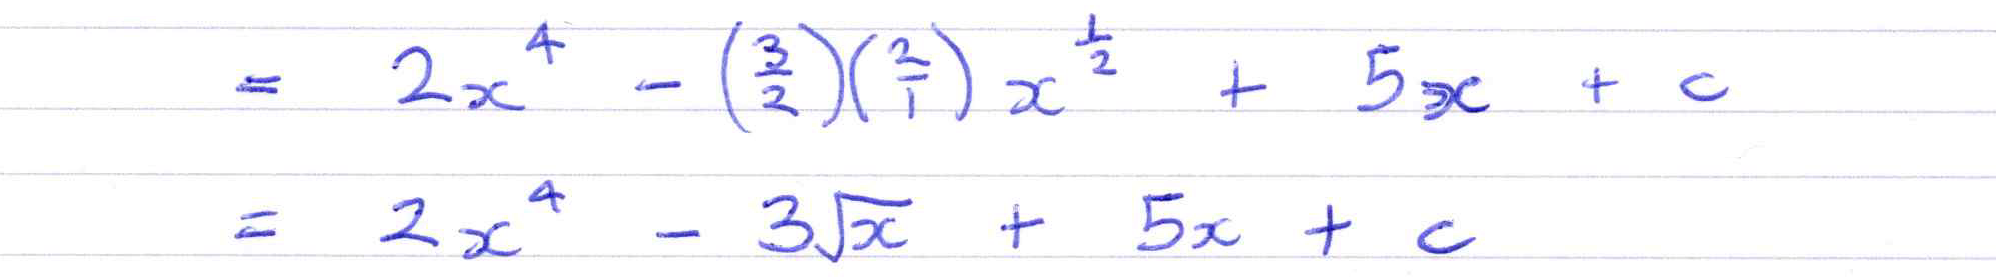 = 2x⁴ - (3/2)(2/1) x^(1/2) + 5x + c
= 2x⁴ - 3√x + 5x + c